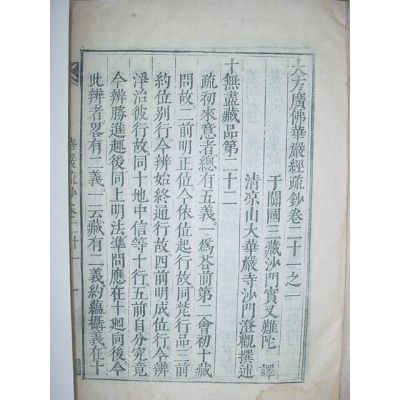 大方廣佛華嚴經疏鈔卷二十一之一
于闐國三藏沙門實叉難陀 譯
清涼山大華嚴寺沙門澄觀撰述
十無盡藏品第二十二
疏初來意者總有五義一爲荅前第二會初十藏
問故二前明正位今依位起行故同梵行品三前
約位別行今辨始終通行故四前明成位行今辨
淨治彼行故同十地中信等十行五前自分究竟
今辨勝進趣後同上明法準問應在十迴向後今
此辨者畧有二義一云藏有二義約蘊攝義在十
華嚴疏鈔卷二十一